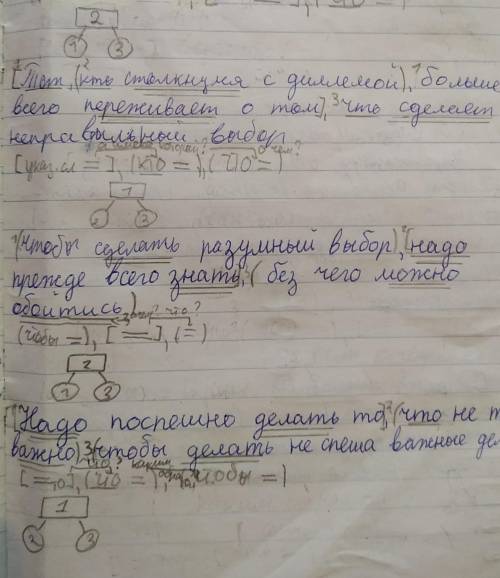 2
1 3
[Тот, (кто столкнулся с диллемой), больше
всего переживает о том], что сделает
неправильный выбор
[указ.сл =], (кто =), (что =)
1
2 3
(Чтобы сделать разумный выбор), [надо
прежде всего знать], (без чего можно
обойтись)
зачем? что?
(чтобы =), [=], (=)
2
1 3
[Надо поспешно делать то], (что не т
важно) (чтобы делать не спеша важные дел
[=то], (что =), чтобы =)
1
2 3